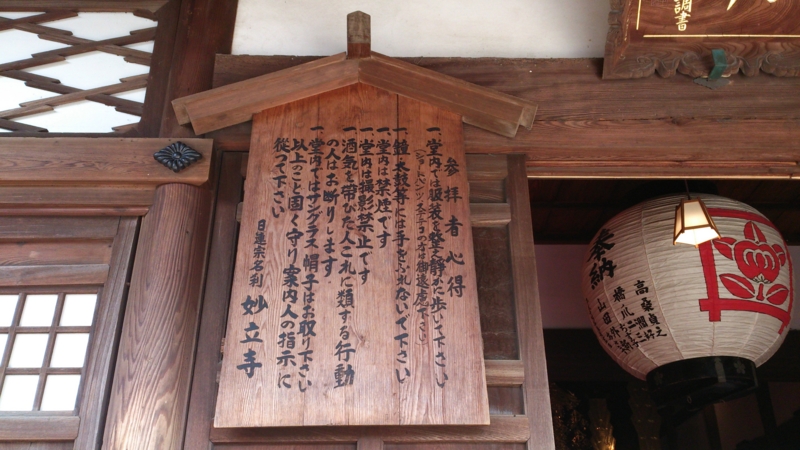 参拝者心得
一、堂内では服装を整え静かに歩いて下さい
(ショートパンツ・ステテコの方は御遠慮下さい)
一、鐘、太鼓等には手をふれないで下さい
一、堂内は禁煙です
一、堂内は撮影禁止です
一、酒気を帯びた人これに類する行動
の人はお断りします
一、堂内ではサングラス、帽子はお取り下さい
以上のこと固く守り案内人の指示に
従って下さい
日蓮宗名刹 妙立寺
奉納
調書